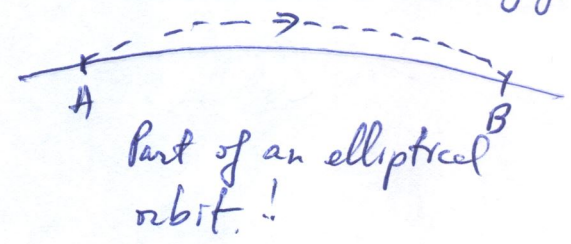 A
B
Part of an elliptical
orbit!